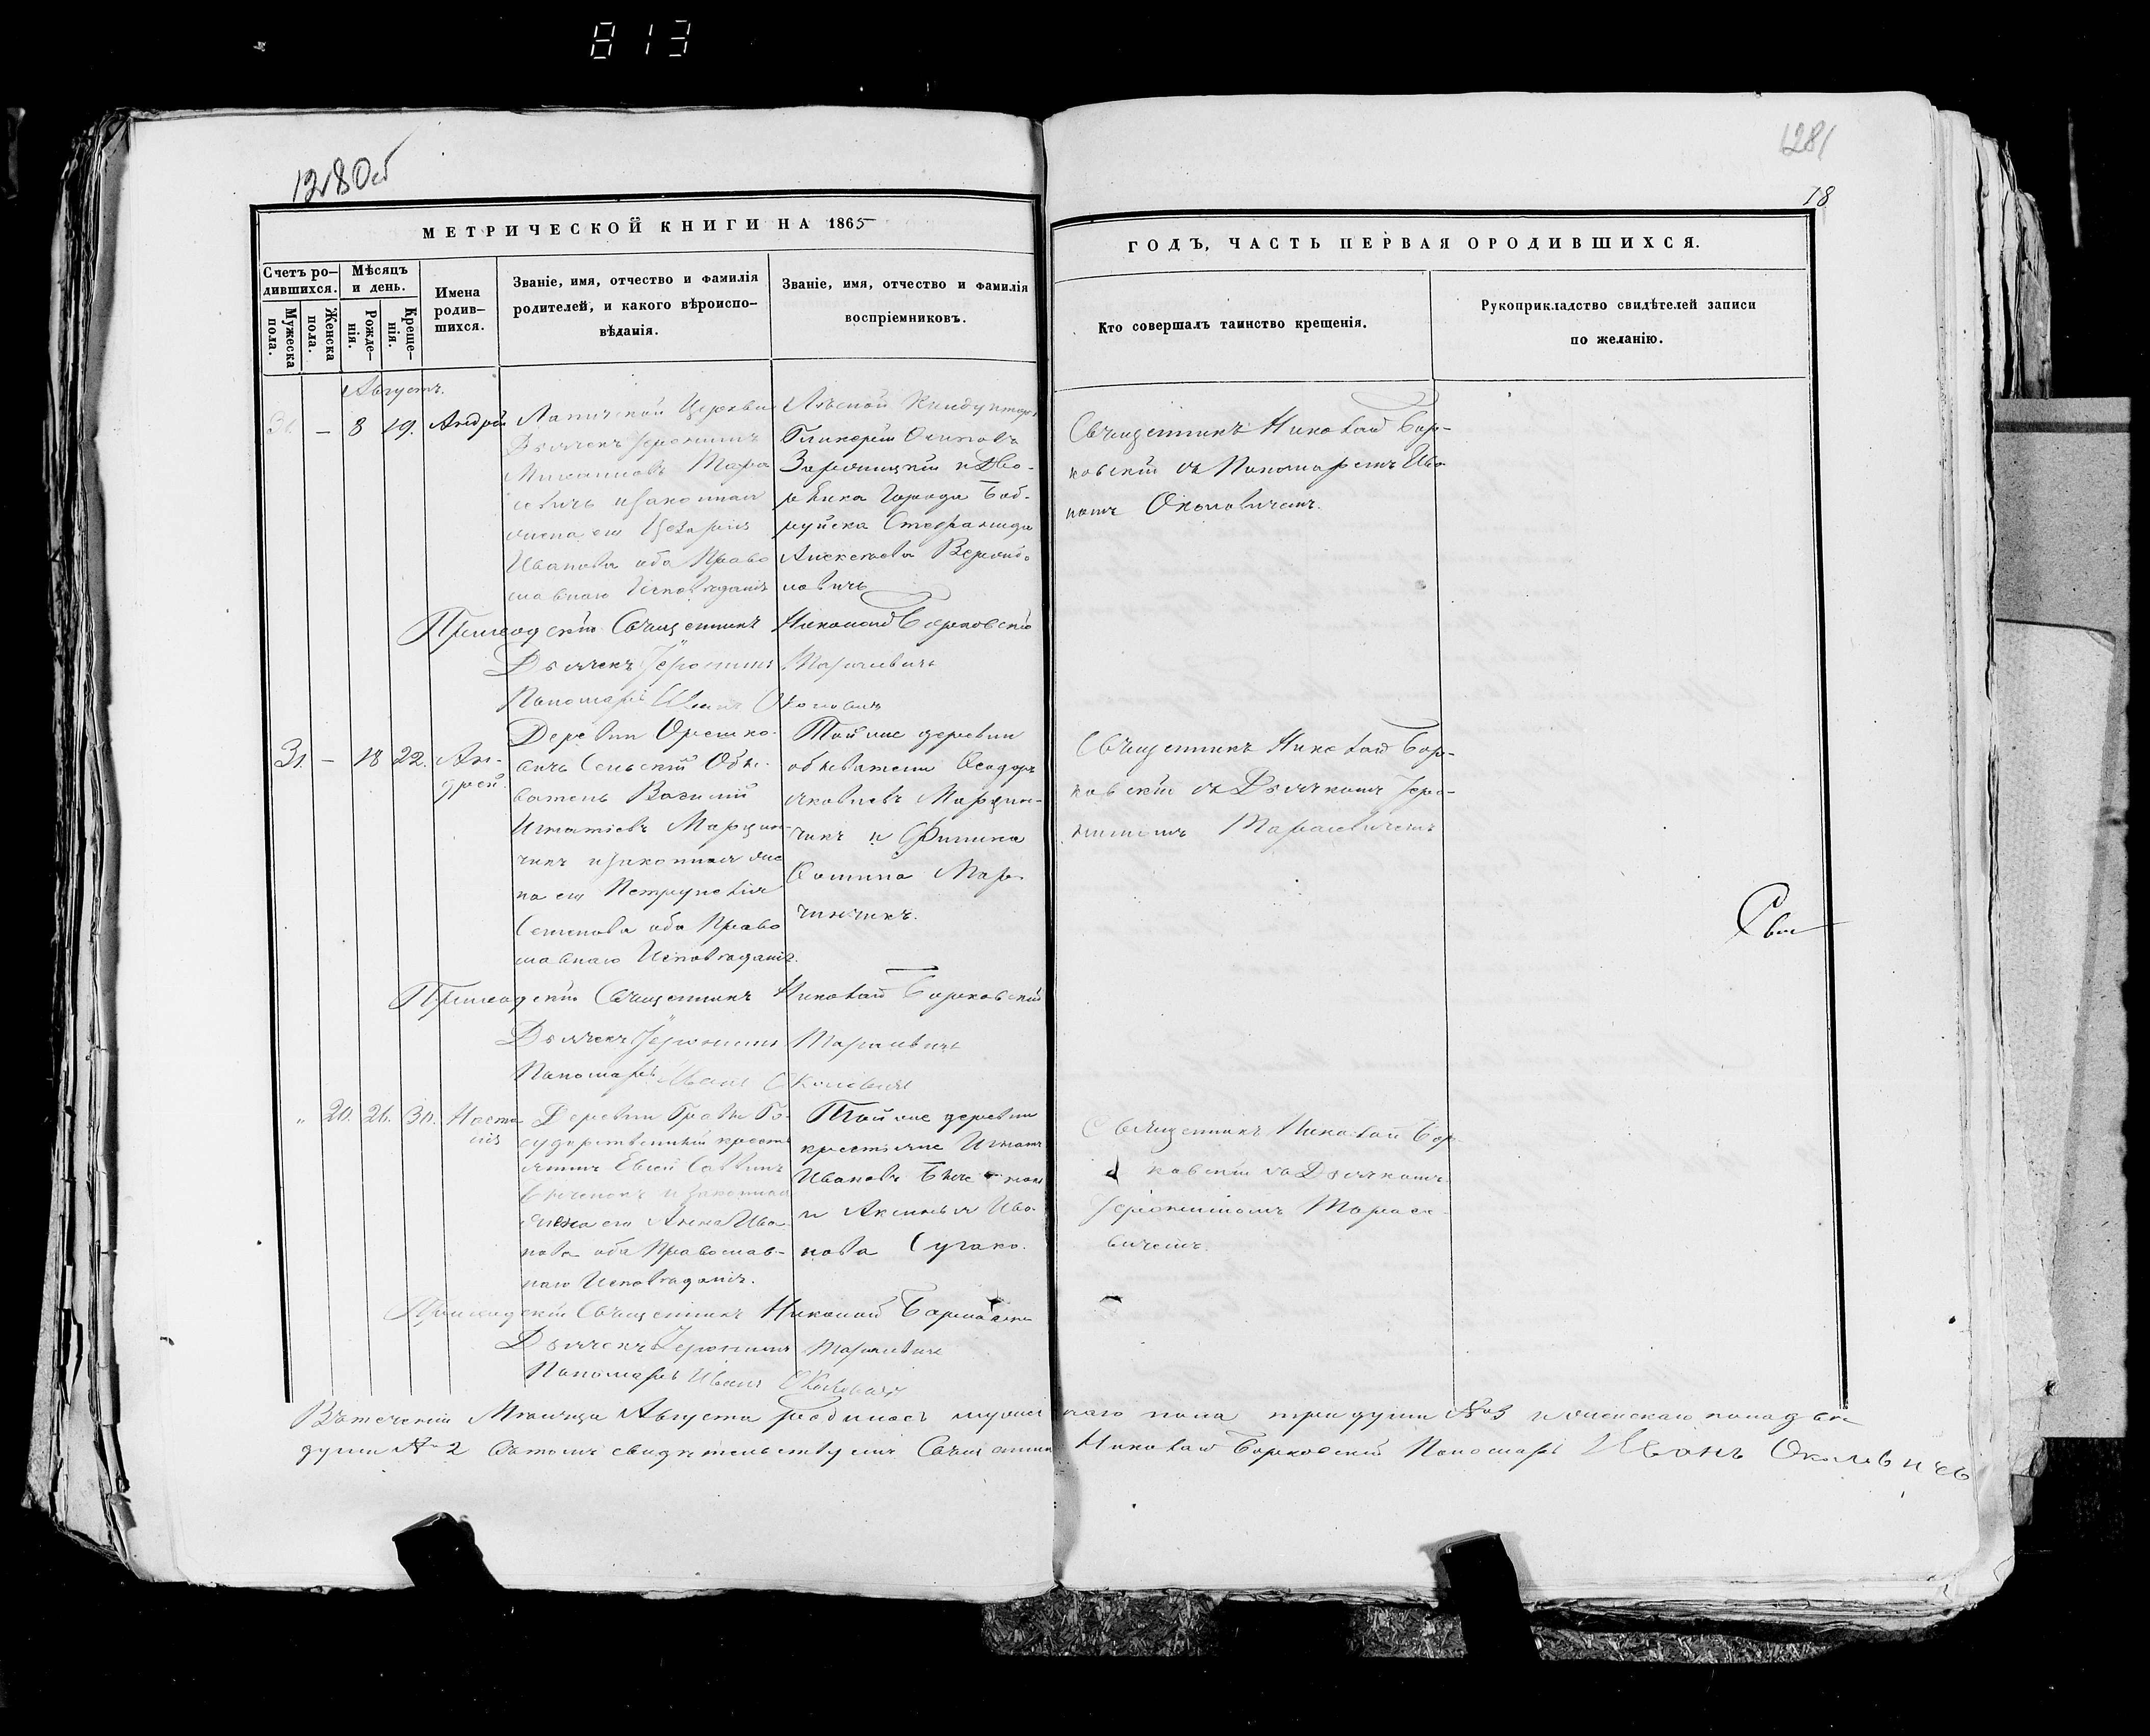 813
1280об
1281
18
МЕТРИЧЕСКОЙ КНИГИ НА 1865
ГОДЪ, ЧАСТЬ ПЕРВАЯ ОРОДИВШИХСЯ.
Счетъ ро-
дившихся.
Мѣсяцъ
и день.
Мужеска
пола.
Женска
пола.
Рожде-
нія.
Креще-
нія.
Имена
родив-
шихся.
Званіе, имя, отчество и фамилія
родителей, и какого вѣроиспо-
вѣданія.
Званіе, имя, отчество и фамилія
воспріемниковъ.
Кто совершалъ таинство крещенія.
Рукоприкладство свидѣтелей записи
по желанію.
Августъ.
— 8 19. Андрей
Лапичской Церкви
Дьячекъ Іеронимъ
Тара
севичъ и законная
жена его
Иванова оба Право
славнаго Исповѣданія
Лѣсной Кондукторъ
Гликерій Осиповъ
и Дво-
рянка Города Боб-
руйска Стефанида
Алексѣева
Священникъ Николай Бор-
ковскій съ Пономаремъ Ива
номъ Околовичемъ.
Приходскій Священникъ Николай Борковскій
Дьячекъ Іеронимъ Тарасевичъ
Пономарь Иванъ Околовичъ
31. — 18 22. Ан-
дрей.
Деревни Орешко-
вичъ Сельскій Обы-
ватель Василій
Игнатіевъ Марцин-
чикъ и законная же
на его Петрунелія
Семенова оба Право
славнаго Исповѣданія.
Той же деревни
обыватели Ѳеодоръ
Яковлевъ Марцин-
чикъ и
Ѳомина Мар-
чинчикъ.
Священникъ Николай Бор-
ковскій съ Дьячкомъ Іеро-
нимомъ Тарасевичемъ
Сви
Приходскій Священникъ Николай Борковскій
Дьячекъ Іеронимъ Тарасевичъ
Пономарь Иванъ Околовичъ
" 20. 26. 30. Наста
сія
Деревни Го-
сударственный кресть
янинъ Евсей Саввинъ
и законная
жена его Анна Ива
нова оба Православ-
наго Исповѣданія.
Той же деревни
крестьяне Игнатъ
Ивановъ
и Аксинья Ива
нова Сугако.
Священникъ Николай Бор
ковскій съ Дьячкомъ
Іеронимомъ Тарасе-
вичемъ.
Приходскій Священникъ Николай Борковскій
Дьячекъ Іеронимъ Тарасевичъ
Пономарь Иванъ Околовичъ
Въ теченіи Мѣсяца Августа родилось мужескаго пола три души №3 и женскаго пола двѣ
души №2 въ томъ свидѣтельствуемъ Священникъ Николай Борковскій Пономарь Иванъ Околовичъ